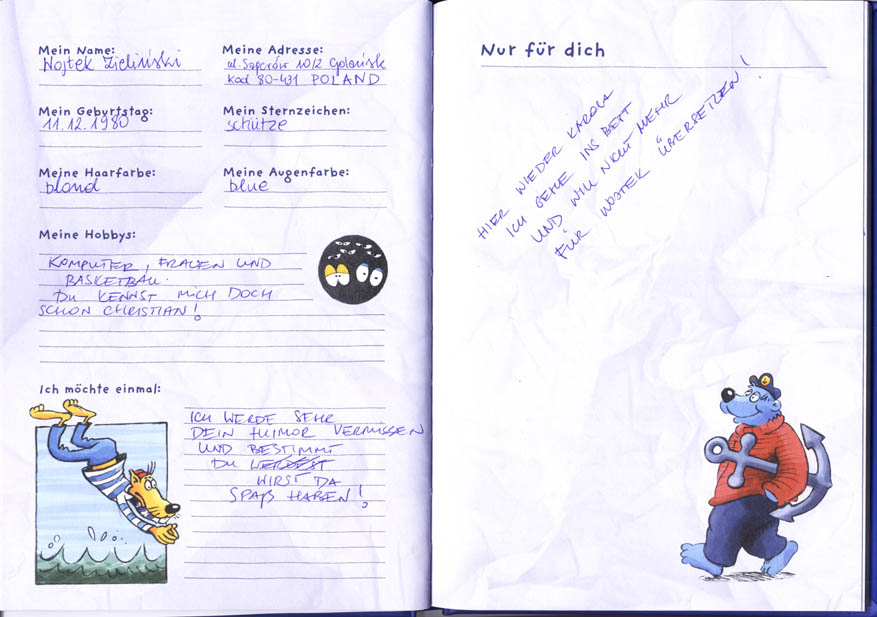 Mein Name:
Wojtek Zieliński
Meine Adresse:
ul. 10/2 Gdańsk
Kod 80-431 POLAND
Mein Geburtstag:
11.12.1980
Mein Sternzeichen:
schütze
Meine Haarfarbe:
blond
Meine Augenfarbe:
blue
Meine Hobbys:
KOMPUTER, FRAUEN UND
BASKETBALL.
DU KENNST MICH DOCH
SCHON CHRISTIAN!
Ich möchte einmal:
ICH WERDE SEHR
DEIN HUMOR VERMISSEN
UND BESTIMMT
DU WERDEST
WIRST DA
SPAß HABEN!
Nur für dich
HIER WIEDER KAROLA
ICH GEHE INS BETT
UND WILL NICHT MEHR
FÜR WOJTEK ÜBERSETZEN!